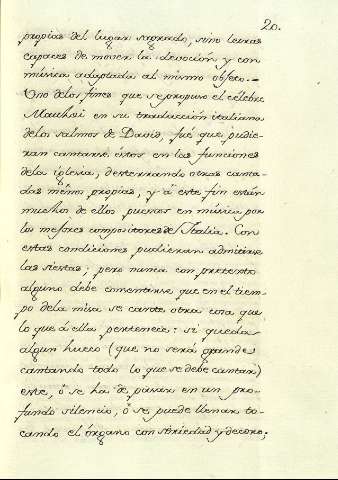 20.
propias del lugar sagrado, sino letras
capaces de mover la devoción y con
música adaptada al mismo objeto.=
Uno delos fines que se propuso el célebre
Matthei en su traducción italiana
delos salmos de David, fué que pudie-
ran cantarse éstos en las funciones
dela iglesia, desterrando otras canta-
das ménos propias, y á este fin están
muchos de ellos puestos en música por
los mejores compositores de Italia. Con
estas condiciones pudieran admitirse
las siestas; pero nunca con pretexto
alguno debe consentirse que en el tiem-
po dela misa se cante otra cosa que
lo que á ella pertenece: si queda
algun hueco (que no será grande
cantando todo lo que se debe cantar)
este, ó se ha de pasar en un pro-
fundo silencio, ó se puede llenar to-
cando el órgano con seriedad y decoro;